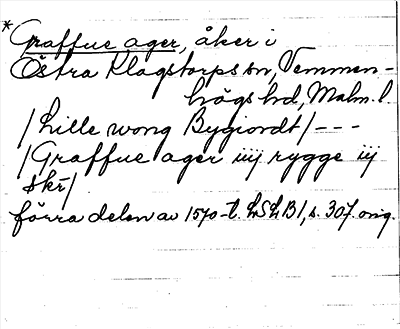 * Graffue ager, åker i
Östra Klagstorps sn, Vemmen-
högs hd, Malm. l
/Lille wong Bygiordt/ - - -
/Graffue ager iiij rygge iij
skr/
förra delen av 1570-t. LSLB1, s. 307. orig.